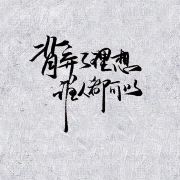 背弃了理想
谁人都可以